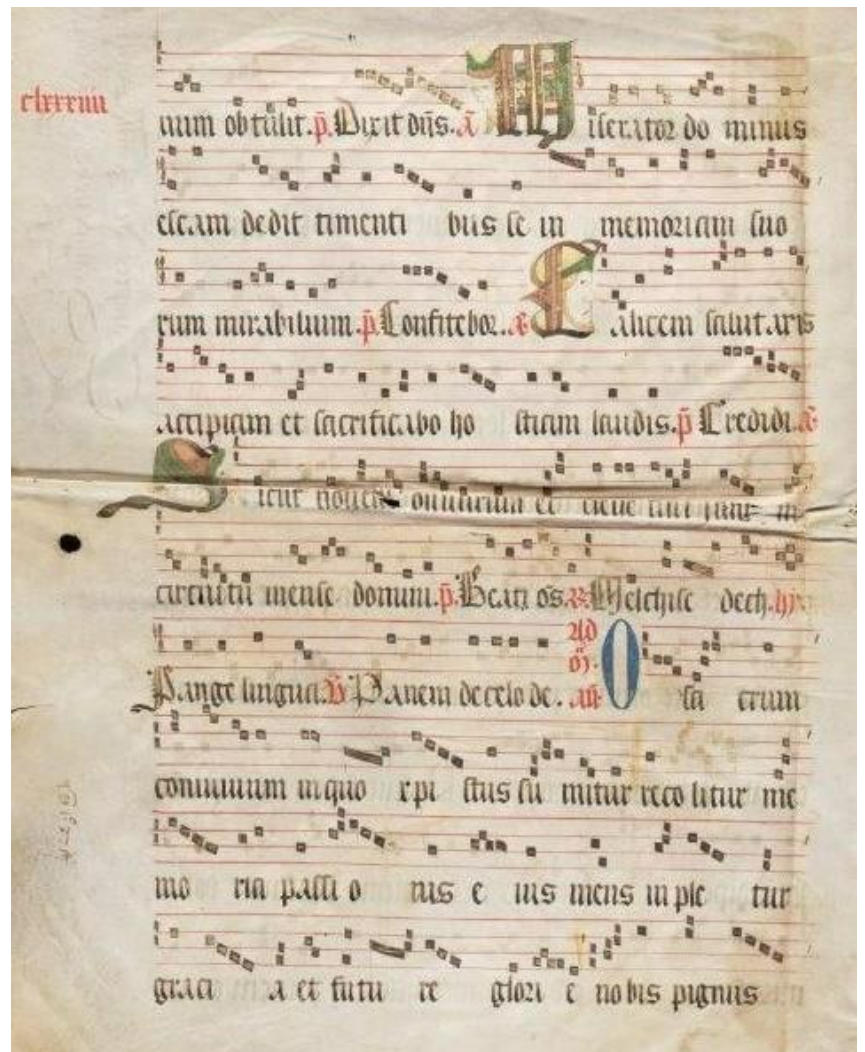 clxxxiiii
uum obtulit. p̄. Dixit dn̄s. a̅ Miserator do minus
escam dedit timenti bus se in memoriam suo
rum mirabilium. p̄. Confitebor. a̅ Calicem salutaris
accipiam et sacrificabo ho stiam laudis. p̄ Credidi. a̅
Sicut novelle olivarum ec clesie filii sint in
circuitu mense domini. p̄. Beati oēs. R̄ Melchise dech. hȳ
Pange lingua. V̄ Panem de celo de. Ad O sa crum
conuiuium in quo xpi stus su mitur reco litur me
mo ria passi o nis e ius mens in ple tur
graci a et futu re glori e no bis pignus